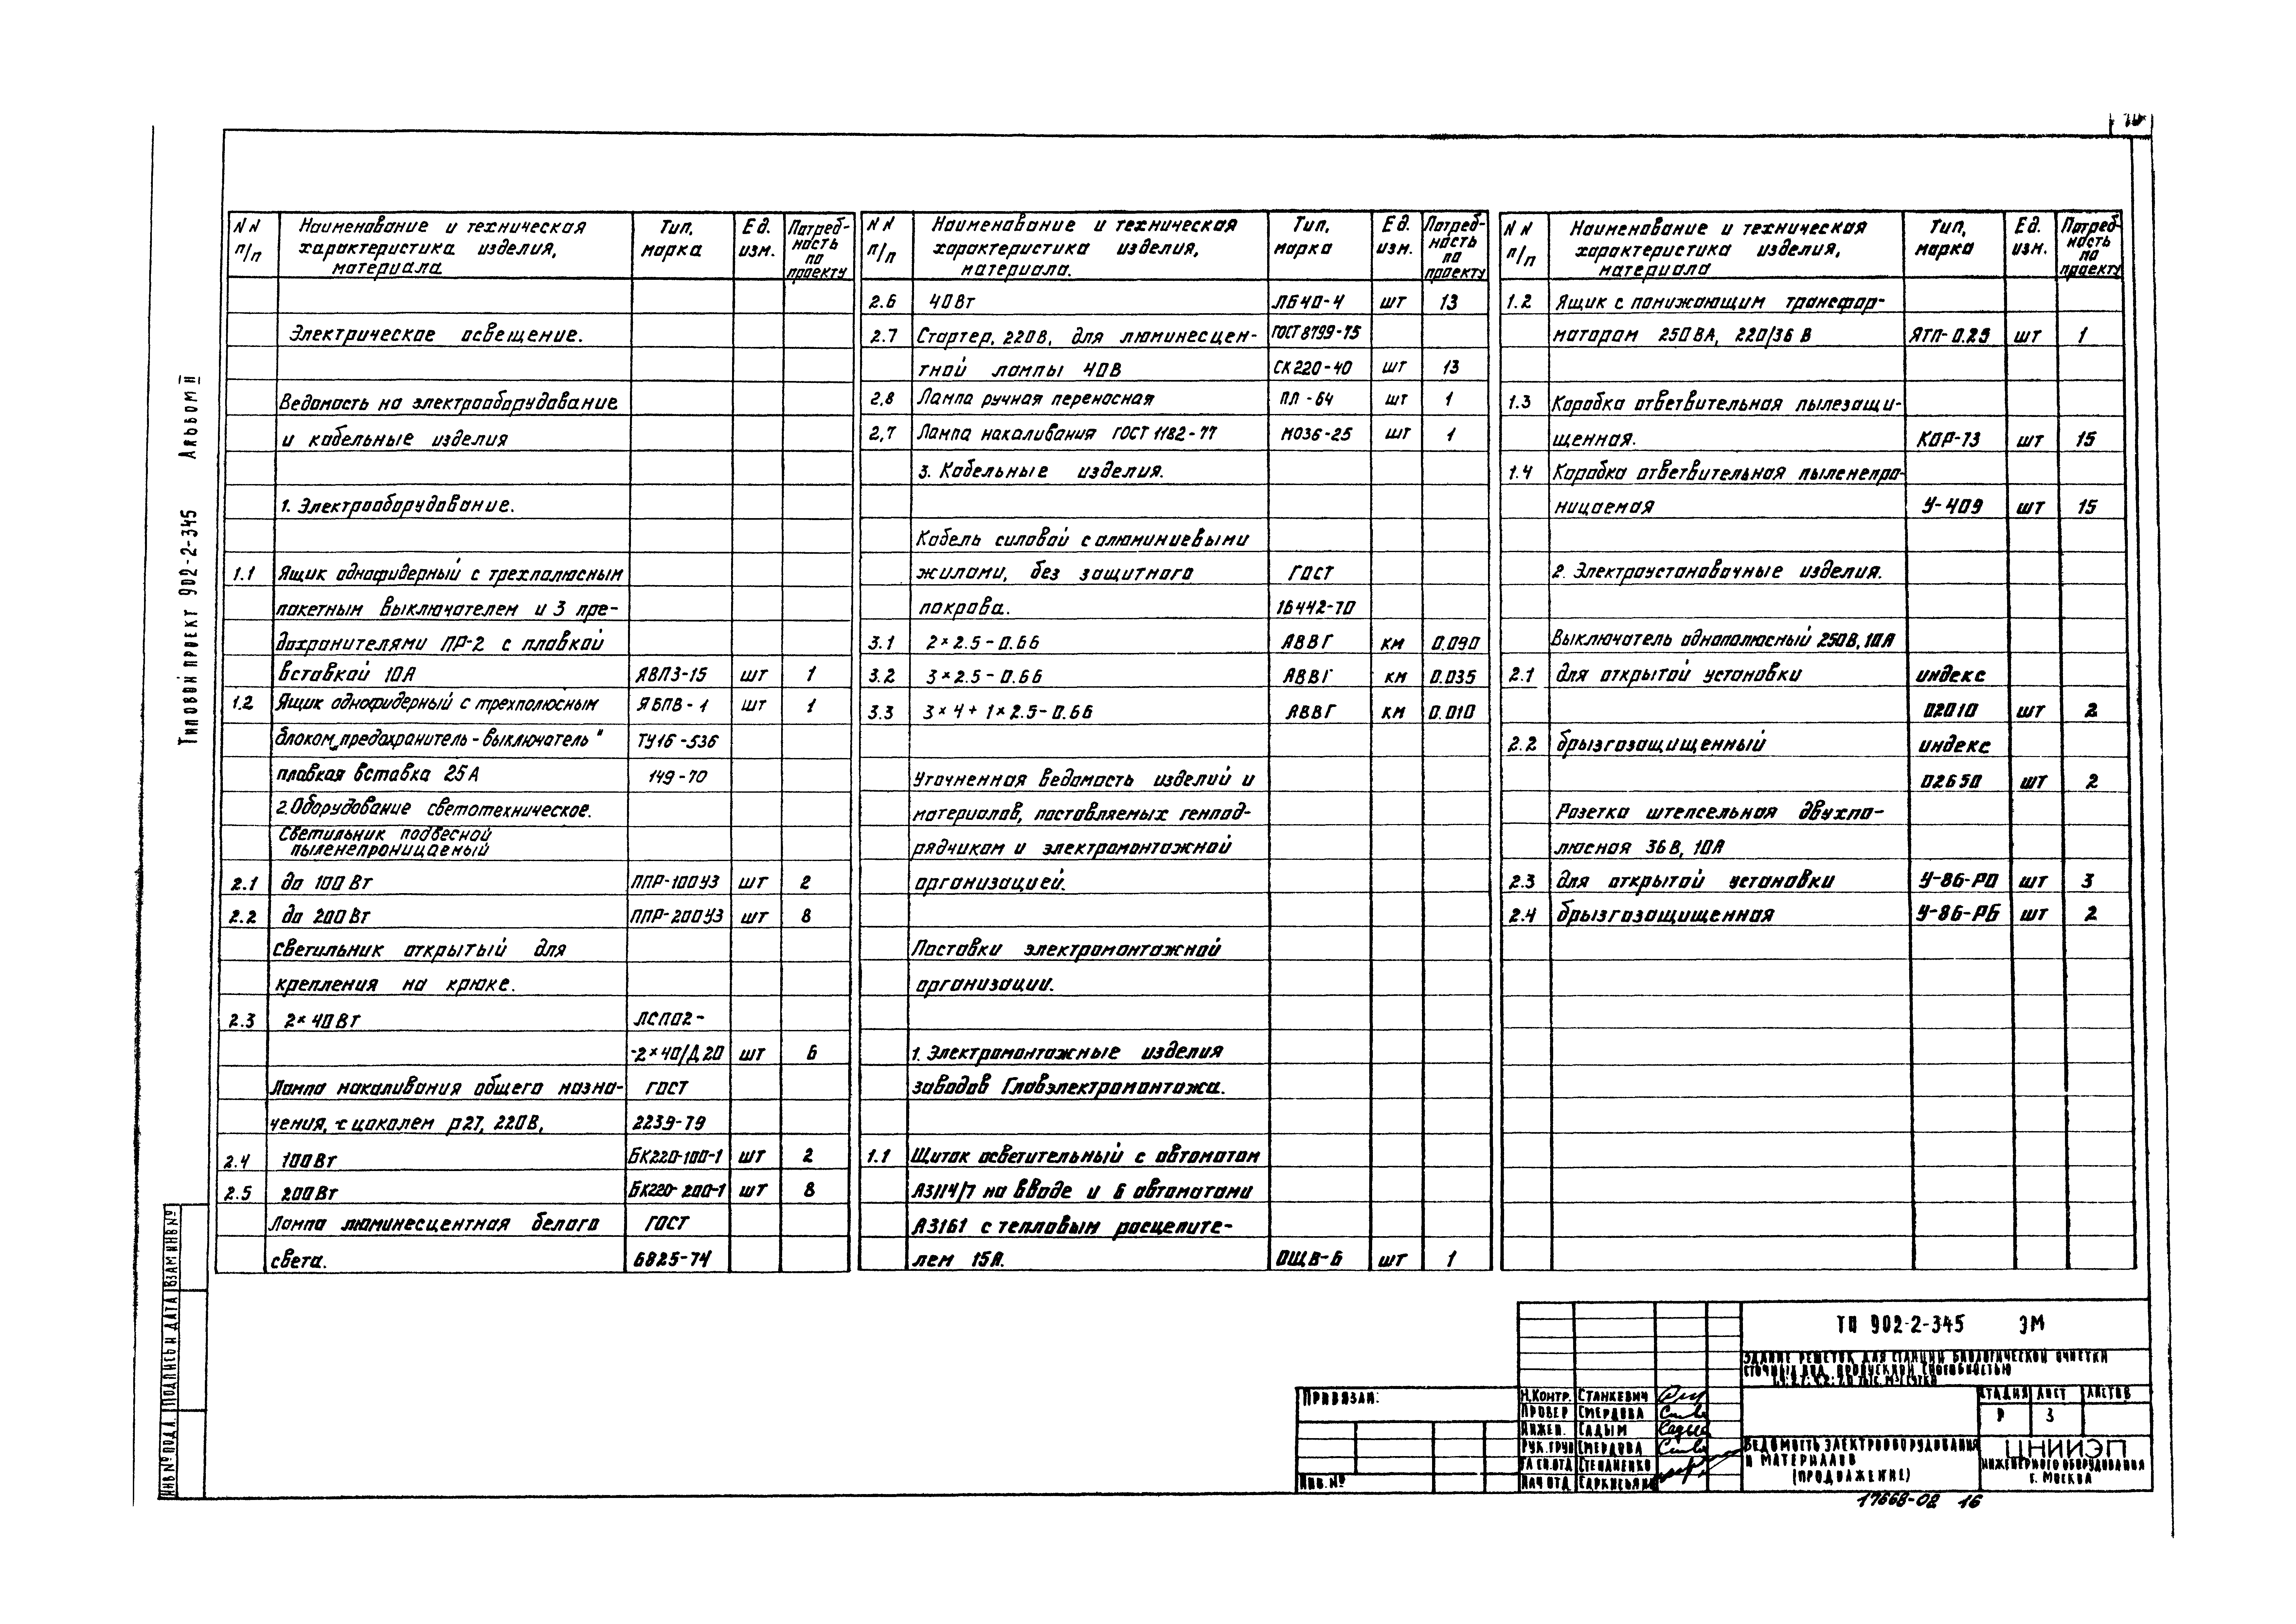 Типовой проект 902-2-345 Альбом II
NN п/п Наименование и техническая характеристика изделия, материала Тип, марка Ед. изм. Потребность по проекту
Электрическое освещение.
Ведомость на электрооборудование
и кабельные изделия
1. Электрооборудование.
1.1 Ящик однофидерный с трехполюсным
пакетным выключателем и 3 пре-
дохранителями ПР-2 с плавкой
вставкой 10А ЯВПЗ-15 шт 1
1.2 Ящик однофидерный с трехполюсным ЯБПВ-1 шт 1
блоком „предохранитель-выключатель" ТУ16-536
плавкая вставка 25А 149-70
2. Оборудование светотехническое.
Светильник подвесной
пыленепроницаемый
2.1 до 100Вт ППР-100У3 шт 2
2.2 до 200Вт ППР-200У3 шт 8
Светильник открытый для
крепления на крюке.
2.3 2×40Вт ЛСП02-
-2×40/Д20 шт 6
Лампа накаливания общего назна- ГОСТ
чения, с цоколем р27, 220В, 2239-79
2.4 100Вт БК220-100-1 шт 2
2.5 200Вт БК220-200-1 шт 8
Лампа люминесцентная белого ГОСТ
света. 6825-74
NN п/п Наименование и техническая характеристика изделия, материала. Тип, марка Ед. изм. Потребность по проекту
2.6 40Вт ЛБ40-4 шт 13
2.7 Стартер, 220В, для люминесцен- ГОСТ 8799-75
тной лампы 40В СК220-40 шт 13
2.8 Лампа ручная переносная ПЛ-64 шт 1
2,7 Лампа накаливания ГОСТ 1182-77 МО36-25 шт 1
3. Кабельные изделия.
Кабель силовой с алюминиевыми
жилами, без защитного ГОСТ
покрова. 16442-70
3.1 2×2.5-0.66 АВВГ км 0.090
3.2 3×2.5-0.66 АВВГ км 0.035
3.3 3×4+1×2.5-0.66 АВВГ км 0.010
Уточненная ведомость изделий и
материалов, поставляемых генпод-
рядчиком и электромонтажной
организацией.
Поставки электромонтажной
организации.
1. Электромонтажные изделия
заводов Главэлектромонтажа.
1.1 Щиток осветительный с автоматом
А3114/7 на вводе и 6 автоматами
А3161 с тепловым расцепите-
лем 15А. ОЩВ-6 шт 1
NN п/п Наименование и техническая характеристика изделия, материала Тип, марка Ед. изм. Потребность по проекту
1.2 Ящик с понижающим трансфор-
матором 250ВА, 220/36 В ЯТП-0.25 шт 1
1.3 Коробка ответвительная пылезащи-
щенная. КОР-73 шт 15
1.4 Коробка ответвительная пыленепро-
ницаемая У-409 шт 15
2. Электроустановочные изделия.
Выключатель однополюсный 250В, 10А
2.1 для открытой установки индекс
02010 шт 2
2.2 брызгозащищенный индекс
02650 шт 2
Розетка штепсельная двухпо-
люсная 36В, 10А
2.3 для открытой установки У-86-РО шт 3
2.4 брызгозащищенная У-86-РБ шт 2
ТП 902-2-345 ЭМ
Здание решеток для станции биологической очистки
сточных вод, пропускной способностью
Стадия Лист Листов
Р 3
Ведомость электрооборудования
и материалов
(продолжение)
ЦНИИЭП
инженерного оборудования
г. Москва
Н.контр. Станкевич
Провер Смердова
Инжен. Садым
Рук.груп Смердова
Гл сп.отд Степаненко
Нач отд Саркисьян
Привязан:
Инв.№
Инв № подл. Подпись и дата Взам инв №
17668-02 16